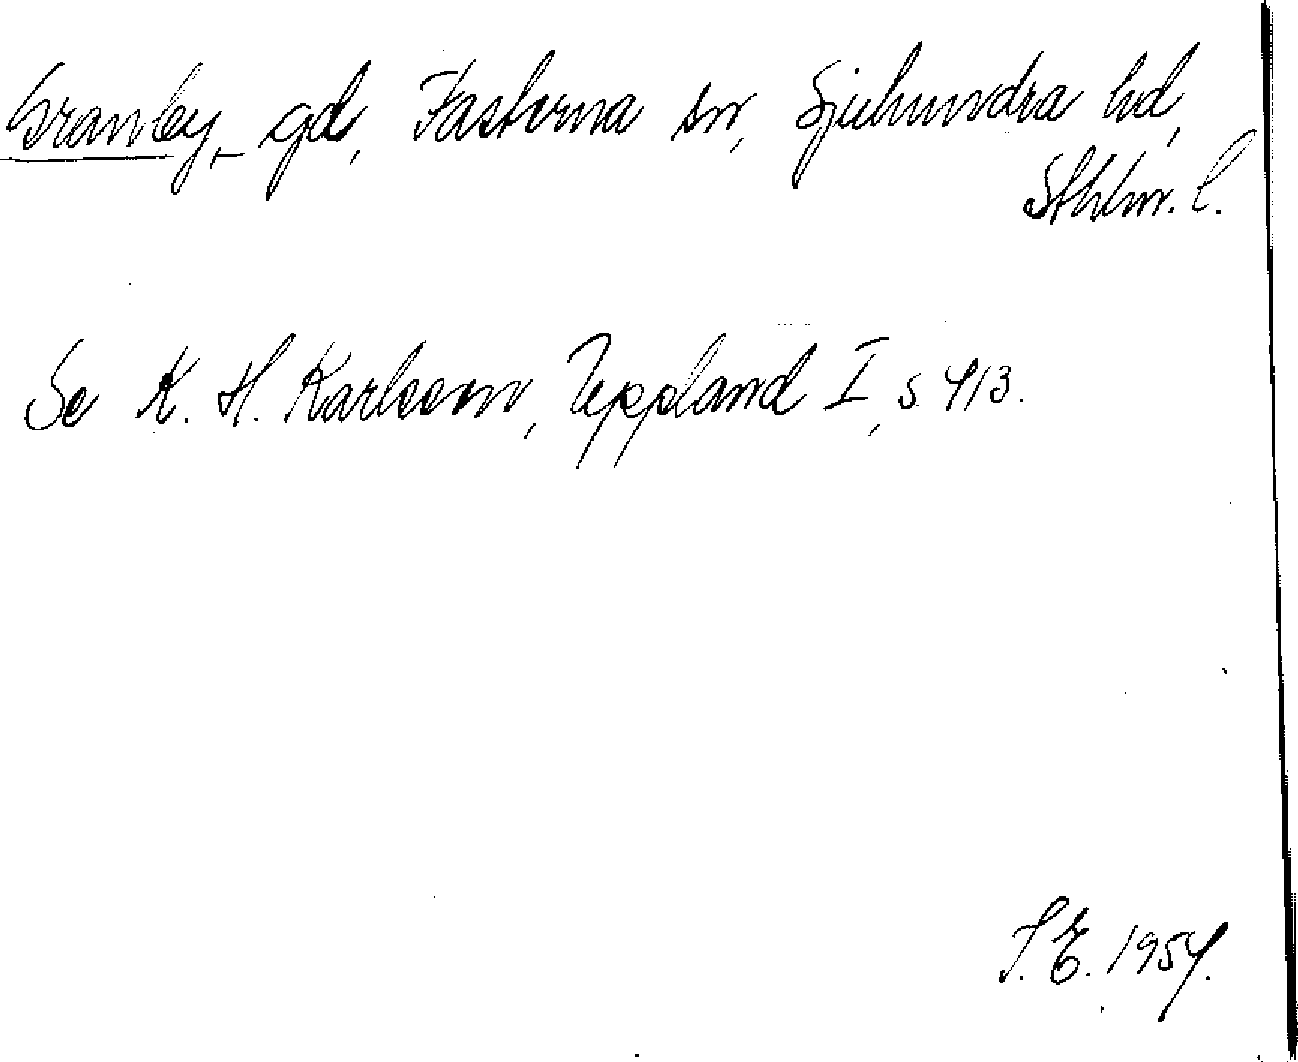 Granby, gd, Fasterna sn, Sjuhundra hd,
Sthlm. l.
Se K. H. Karlsson, Uppland I, s 413.
S. E. 1954.